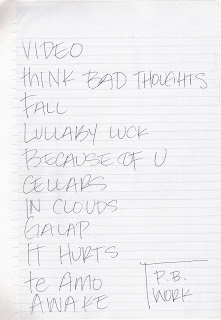 VIDEO
THINK BAD THOUGHTS
FALL
LULLABY LUCK
BECAUSE OF U
CELLARS
IN CLOUDS
GALAP
IT HURTS
te AMO
AWAKE
P.B.
WORK